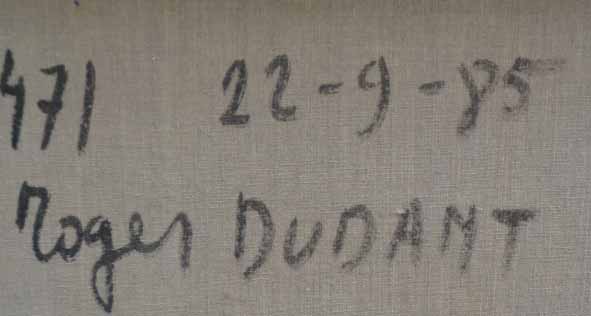 471 22-9-85
Roger DUDANT